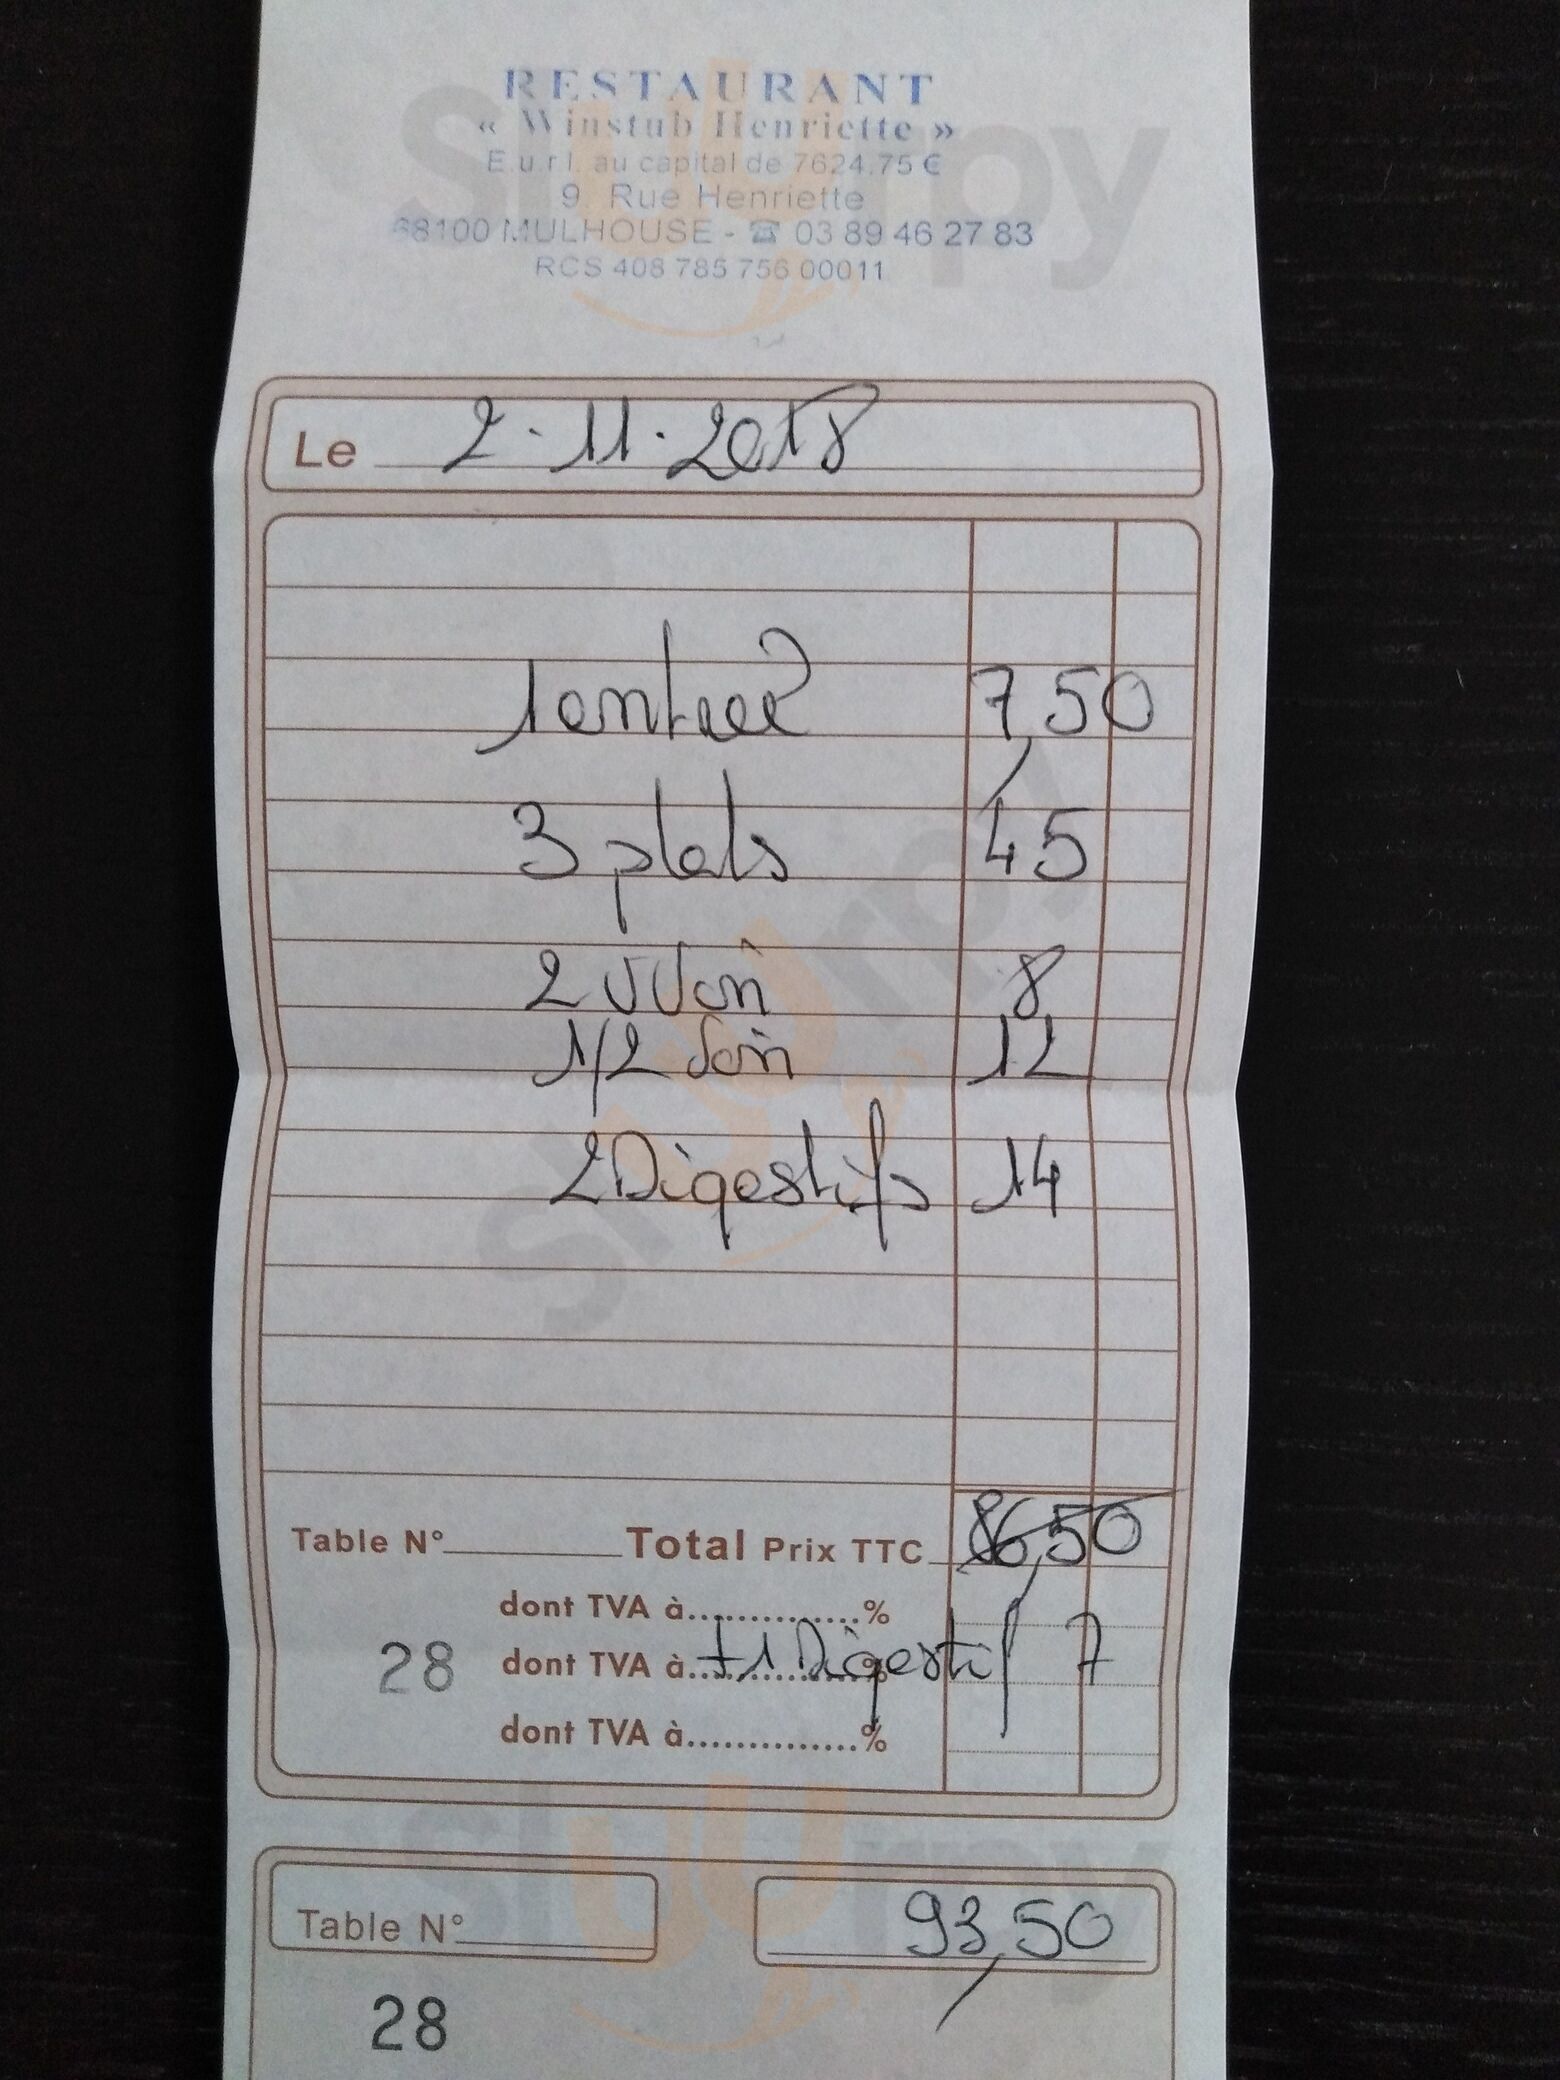 RESTAURANT
« Winstub Henriette »
E.u.r.l. au capital de 7624.75 €
9, Rue Henriette
68100 MULHOUSE - ☎ 03 89 46 27 83
RCS 408 785 756 00011
Le 2.11.2018
1 entree 7,50
3 plats 45
2 8
1/2 12
2 Digestifs 14
Table N° Total Prix TTC 86,50
dont TVA à...............%
28 dont TVA à...............% +1 Digestif 7
dont TVA à...............%
Table N° 93,50
28
slurpy
slurpy
slurpy